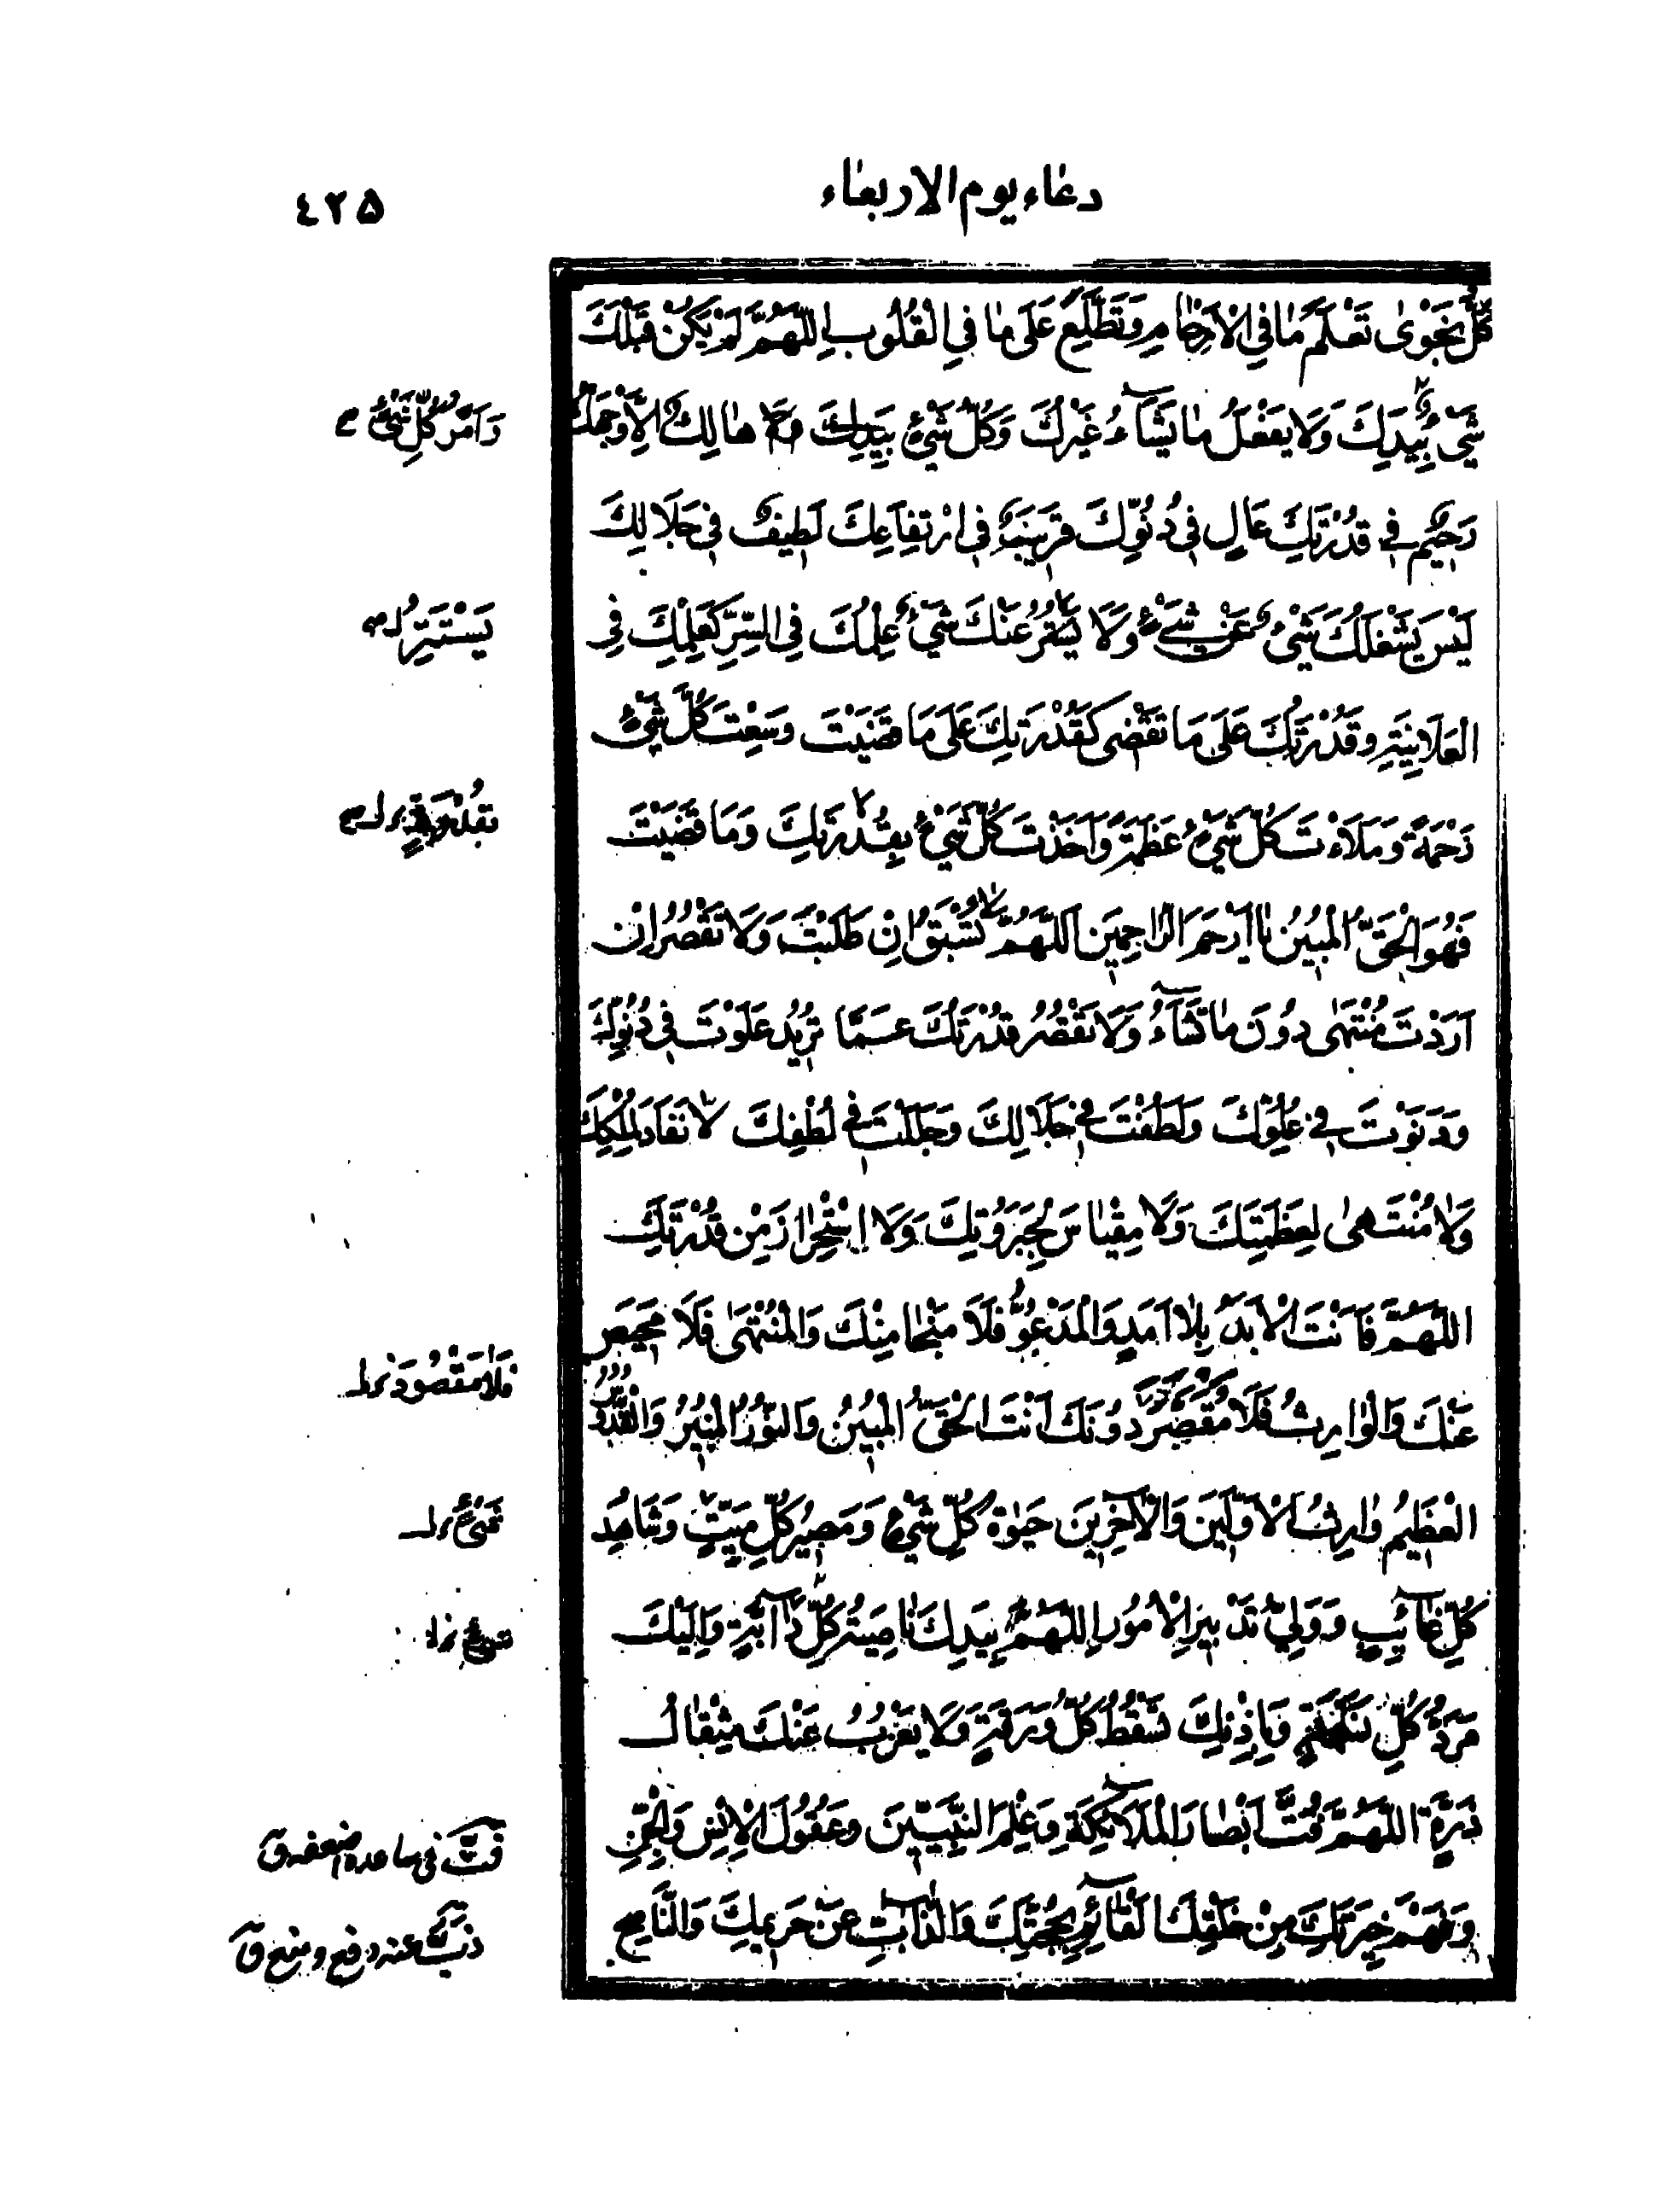 دعاء يوم الاربعاء
٤٢٥
كُلَّ نَجْوىٰ تَعْلَمُ مٰا فِي الْاَرْحٰامِ وَتَطَّلِعُ عَلىٰ مٰا فِي الْقُلُوبِ اَللّٰهُمَّ لَمْ يَكُنْ قَبْلَكَ
شَيْءٌ بِيَدِكَ وَلَا يَفْعَلُ مٰا يَشٰآءُ غَيْرُكَ وَكُلُّ شَيْءٍ بِيَدِكَ هٰالِكٌ اِلَّا وَجْهَكَ
وَاَمْرُ كُلِّ شَيْءٍ
رَحِيمٌ فِي قُدْرَتِكَ عَالٍ فِي دُنُوِّكَ قَرِيبٌ فِي ارْتِفٰاعِكَ لَطِيفٌ فِي جَلَالِكَ
لَيْسَ يَشْغَلُكَ شَيْءٌ عَنْ شَيْءٍ وَلَا يَسْتُرُ عَنْكَ شَيْءٌ عِلْمُكَ فِي السِّرِّ كَعِلْمِكَ فِي
يَسْتَتِرُ
الْعَلَانِيَةِ وَقُدْرَتُكَ عَلىٰ مَا تَقْضِي كَقُدْرَتِكَ عَلىٰ مَا قَضَيْتَ وَسِعْتَ كُلَّ شَيْءٍ
رَحْمَةً وَمَلَأْتَ كُلَّ شَيْءٍ عَظَمَةً وَاَخَذْتَ كُلَّ شَيْءٍ بِقُدْرَتِكَ وَمَا قَضَيْتَ
بِقُدْرَةٍ
فَهُوَ الْحَقُّ الْمُبِينُ يٰا اَرْحَمَ الرّٰاحِمِينَ اَللّٰهُمَّ لَا تُسْبَقُ اِنْ طَلَبْتَ وَلَا تَقْصُرُ اِنْ
اَرَدْتَ مُنْتَهىٰ دُونَ مٰا تَشٰآءُ وَلَا تَقْصُرُ قُدْرَتُكَ عَمَّا تُرِيدُ عَلَوْتَ فِي دُنُوِّكَ
وَدَنَوْتَ فِي عُلُوِّكَ وَلَطُفْتَ فِي جَلَالِكَ وَجَلَلْتَ فِي لُطْفِكَ لَا نَفَادَ لِمُلْكِكَ
وَلَا مُنْتَهىٰ لِعَظَمَتِكَ وَلَا مِقْيٰاسَ لِجَبَرُوتِكَ وَلَا اسْتِحْرٰازَ مِنْ قُدْرَتِكَ
اَللّٰهُمَّ فَاَنْتَ الْاَبَدُ بِلٰا اَمَدٍ وَالْمَدْعُوُّ فَلَا مَنْجٰا مِنْكَ وَالْمُنْتَهىٰ فَلَا مَحِيصَ
عَنْكَ وَالْوٰارِثُ فَلَا مَقْصَرَ دُونَكَ اَنْتَ الْحَقُّ الْمُبِينُ وَالنُّورُ الْمُنِيرُ وَالْقُدُّوسُ
فَلَا مَقْصُودَ
الْعَظِيمُ وٰارِثُ الْاَوَّلِينَ وَالْاٰخِرِينَ حَيٰوةُ كُلِّ شَيْءٍ وَمَصِيرُ كُلِّ مَيِّتٍ وَشَاهِدُ
كُلِّ غٰآئِبٍ وَوَلِيُّ تَدْبِيرِ الْاُمُورِ اَللّٰهُمَّ بِيَدِكَ نٰاصِيَةُ كُلِّ دٰآبَّةٍ وَاِلَيْكَ
مَرَدُّ كُلِّ نَسَمَةٍ وَبِاِذْنِكَ تَسْقُطُ كُلُّ وَرَقَةٍ وَلَا يَعْزُبُ عَنْكَ مِثْقٰالُ
ذَرَّةٍ اَللّٰهُمَّ فُتَّ اَبْصٰارَ الْمَلَآئِكَةِ وَعِلْمَ النَّبِيِّينَ وَعُقُولَ الْاِنْسِ وَالْجِنِّ
فَتَّ فى ساعده اضعفه ق
وَفَهْمَ خِيَرَتِكَ مِنْ خَلْقِكَ الْقٰآئِمِ بِحُجَّتِكَ وَالذّٰآبِّ عَنْ حَرِيمِكَ وَالنّٰاصِحِ
ذبّ عنه دفع و منع ق